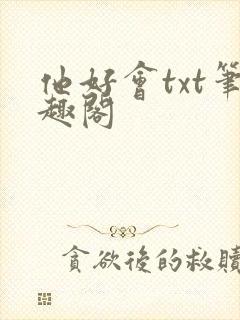 他好會txt筆
趣閣
貪欲後的救贖